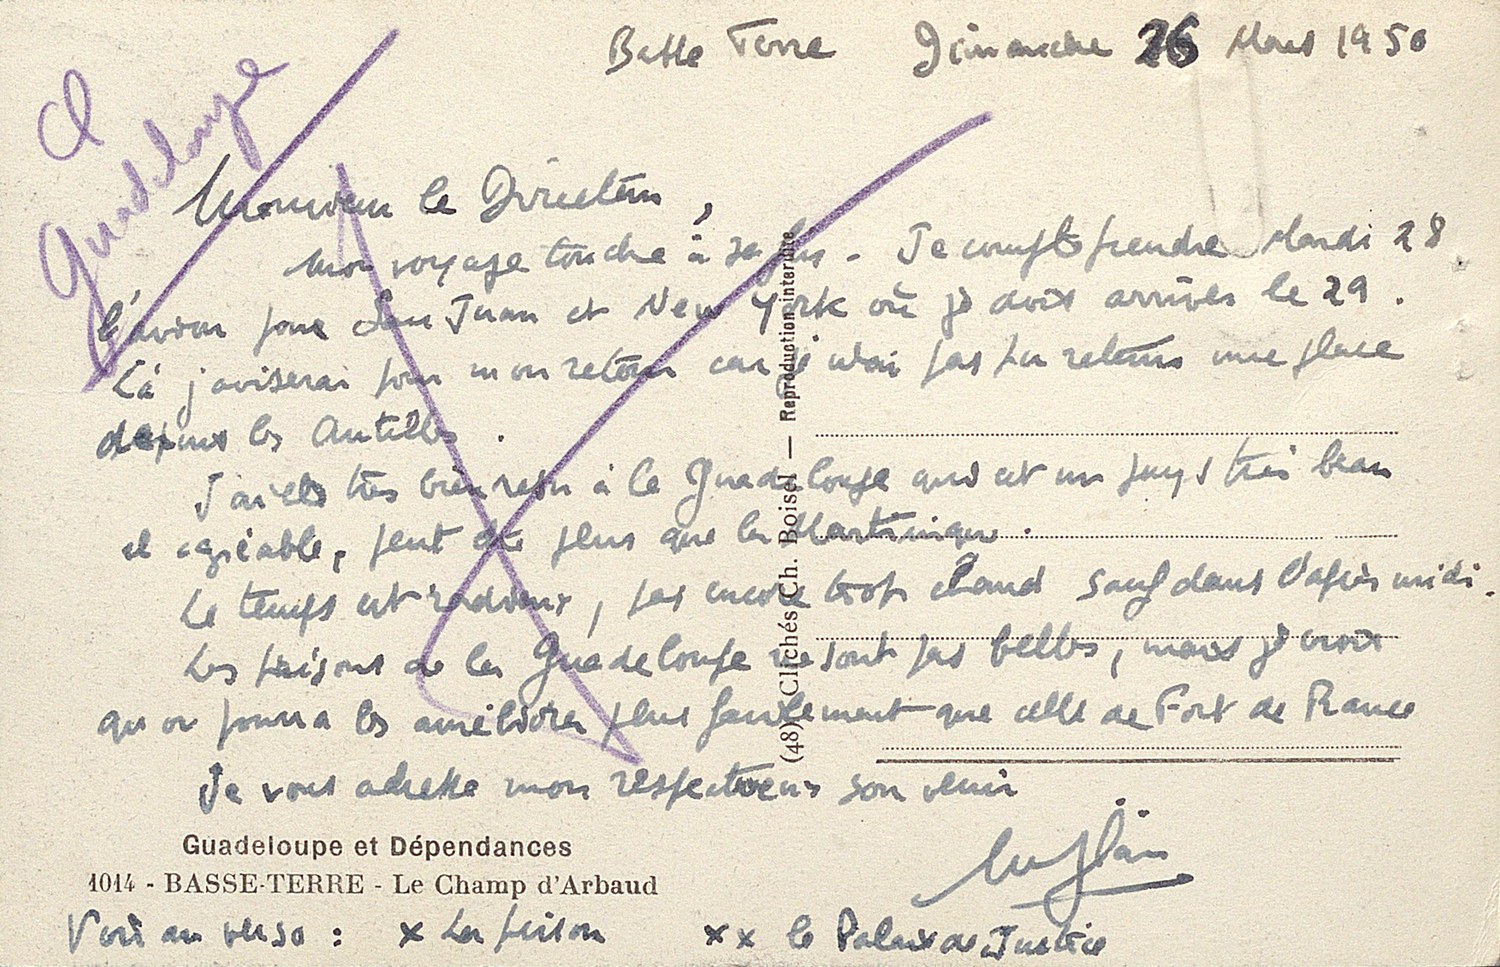 Basse Terre Dimanche 26 Mars 1950
Cl Guadeloupe
Monsieur le Directeur,
Mon voyage touche à sa fin. Je compte prendre Mardi 28
l'avion pour San Juan et New York où je dois arriver le 29.
Là j'aviserai pour mon retour car je n'ai pas pu retenir une place
depuis les Antilles.
J'ai été très bien reçu à la Guadeloupe qui est un pays très beau
et agréable, peut être plus que la Martinique.
Le temps est radieux, pas encore trop chaud sauf dans l'après midi.
Les prisons de la Guadeloupe ne sont pas belles, mais je crois
qu'on pourra les améliorer plus facilement que celle de Fort de France
Je vous adresse mon respectueux souvenir
Guadeloupe et Dépendances
1014 - BASSE-TERRE - Le Champ d'Arbaud
Voir au verso : x La prison xx le Palais de Justice
(48) Clichés Ch. Boisel — Reproduction interdite